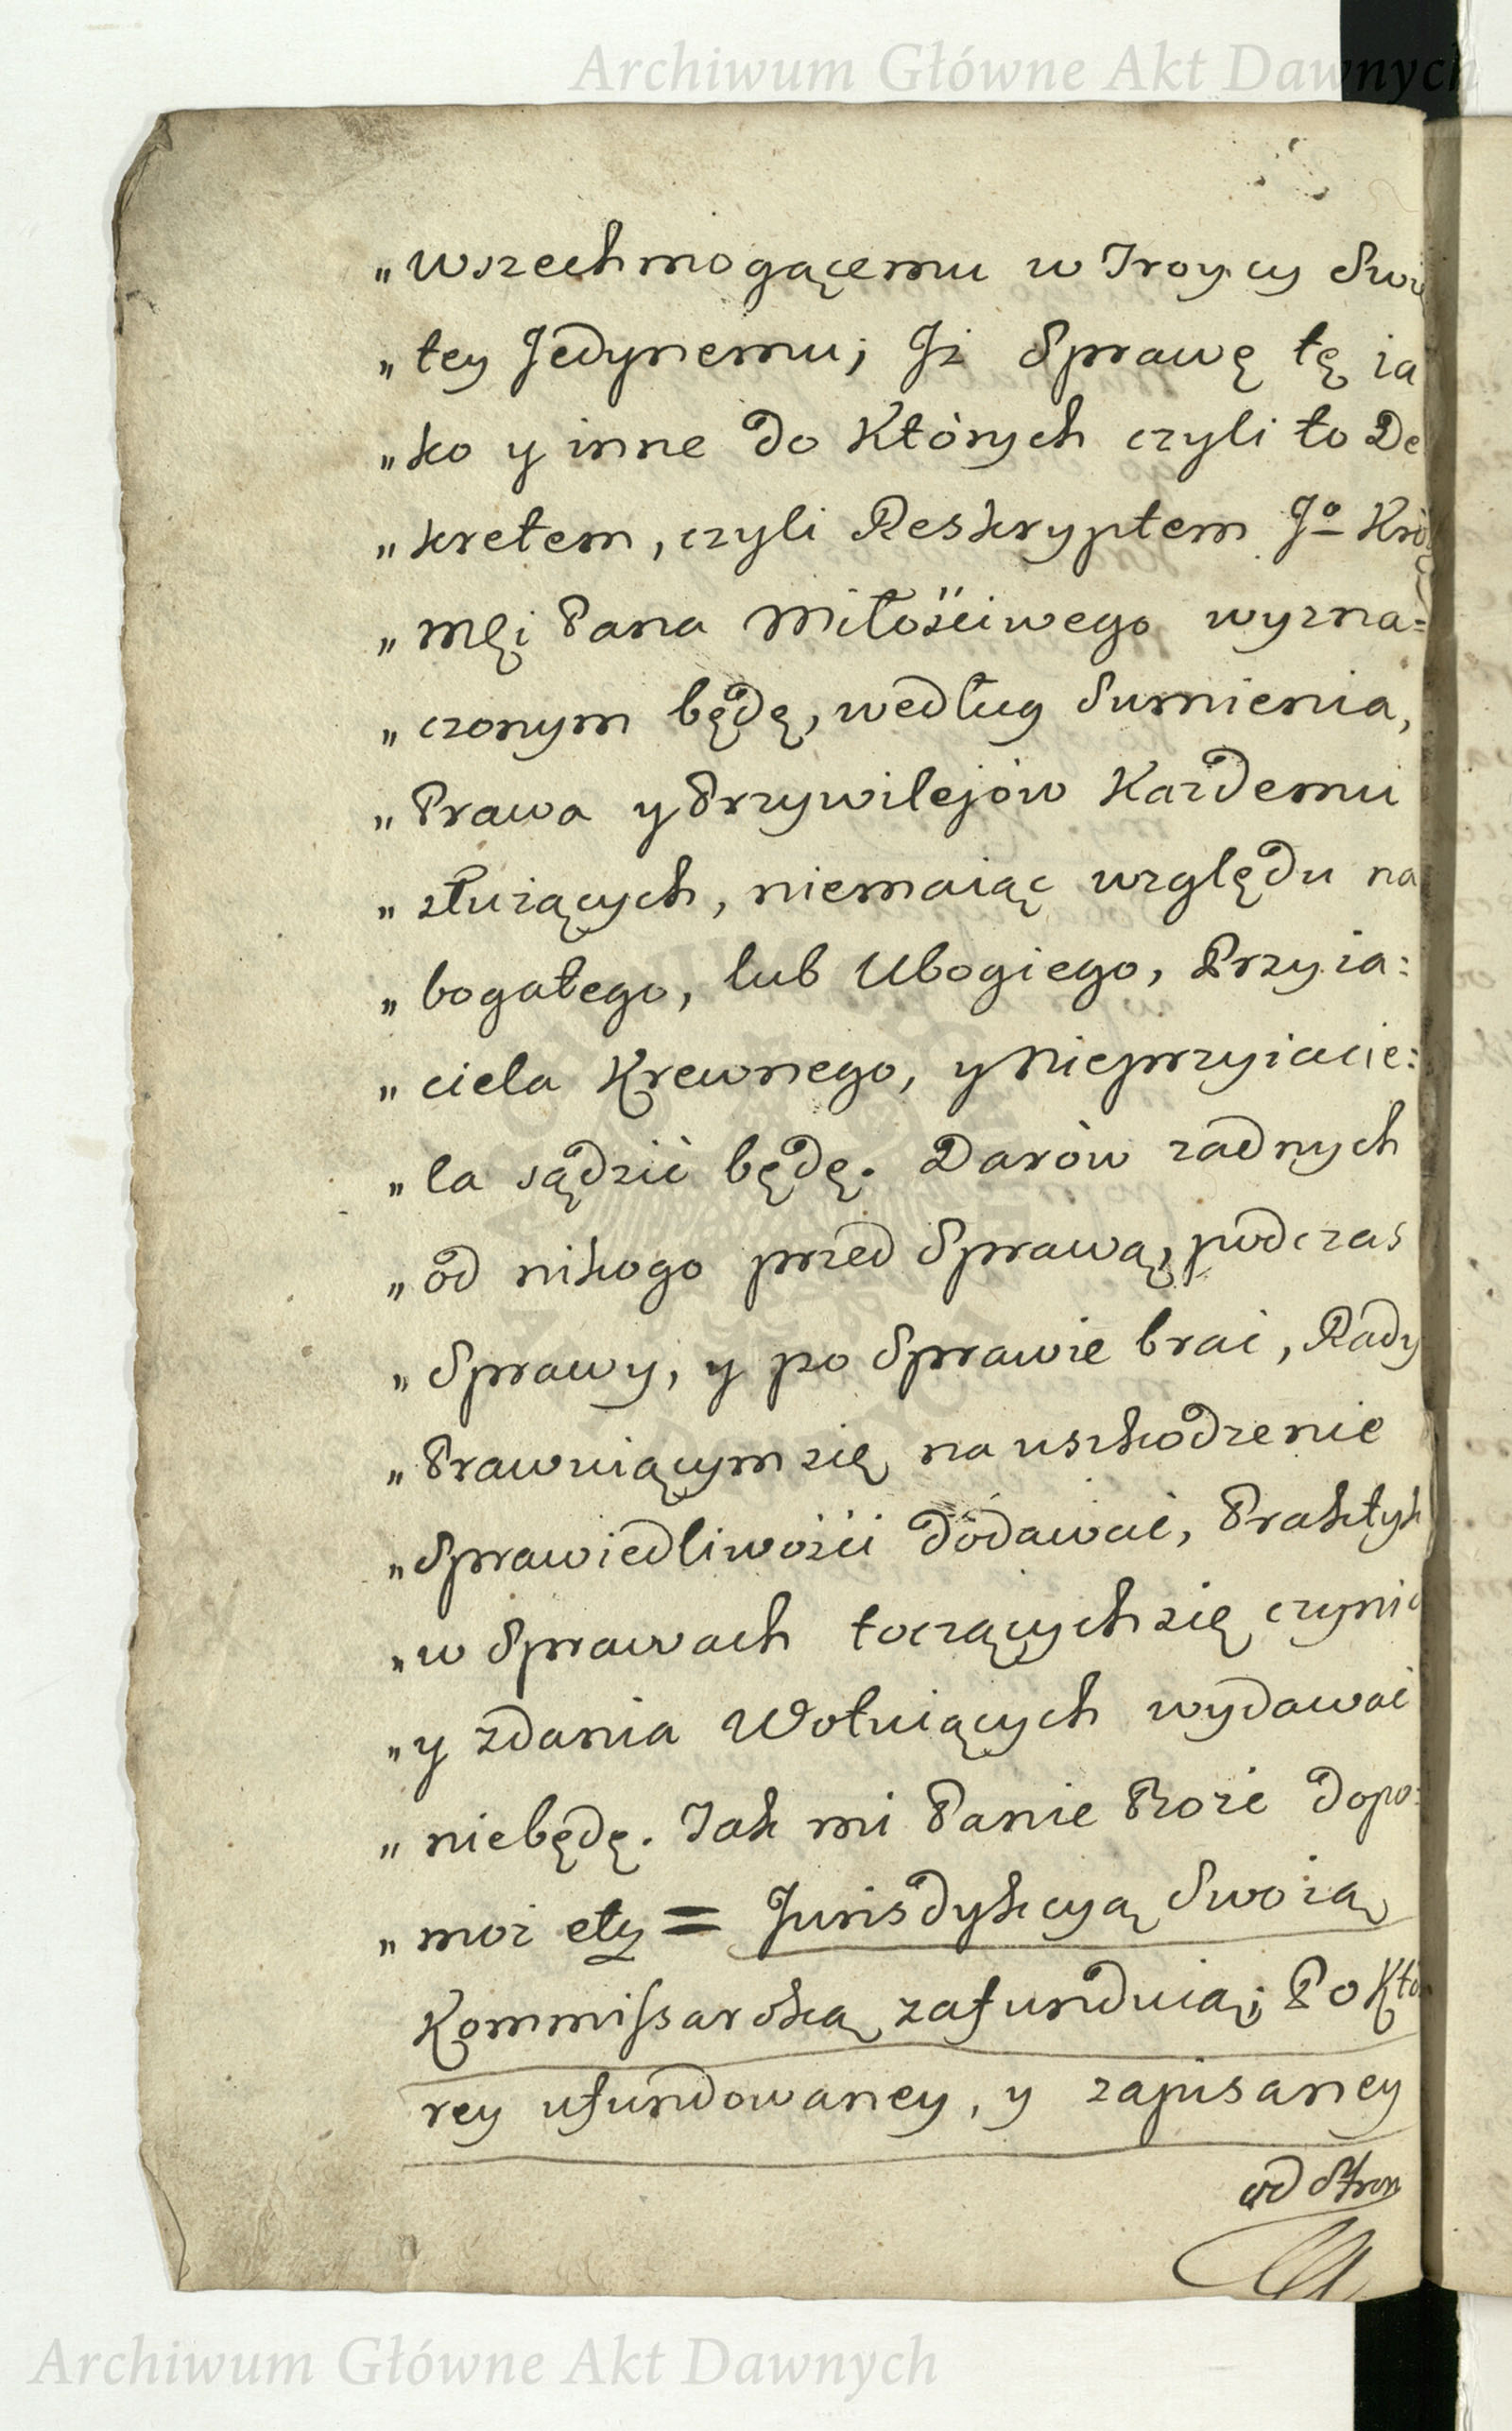 Archiwum Główne Akt Dawnych
„ Wszechmogącemu w Troycy Swię
„ tey Jedynemu; Jż Sprawę tę ia
„ ko y inne do Których czyli to De
„ kretem, czyli Reskryptem Jº Kró
„ Mći Pana Miłośćiwego wyzna=
„ czonym będę, według Sumienia,
„ Prawa y Przywilejów Kazdemu
„ złuzących, niemaiąc względu na
„ bogatego, lub Ubogiego, Przyia:
„ ciela Krewnego, y Nieprzyiacie:
„ la sądzić będę. Darów zadnych
„ od nikogo przed Sprawą, podczas
„ Sprawy, y po Sprawie brać, Rady
„ Prawuiącym zię na uszkodzenie
„ Sprawiedliwośći dodawać, Praktyk
„ w Sprawach toczących zię czynić
„ y zdania Wotuiących wydawać
„ niebędę. Tak mi Panie Boże dopo:
„ moż etc = Jurisdykcyą Swoią
Kommissarską zafunduią; Po Któ
rey ufundowaney, y zapisaney
od Stron
Archiwum Główne Akt Dawnych